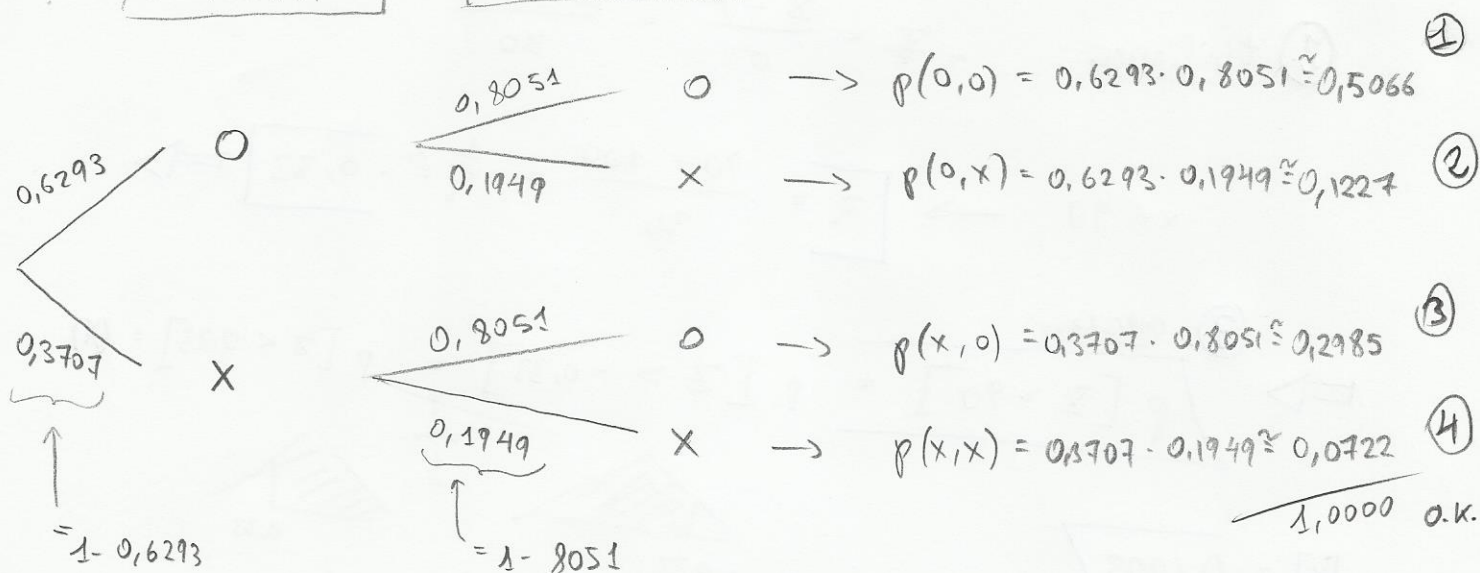 ①
0,8051 O → p(0,0) = 0,6293 · 0,8051 ≅ 0,5066
0,6293 O
0,1949 X → p(0,x) = 0,6293 · 0,1949 ≅ 0,1227 ②
0,8051 O → p(x,0) = 0,3707 · 0,8051 ≅ 0,2985 ③
0,3707 X
0,1949 X → p(x,x) = 0,3707 · 0,1949 ≅ 0,0722 ④
1,0000 O.K.
= 1 - 0,6293 = 1 - 8051